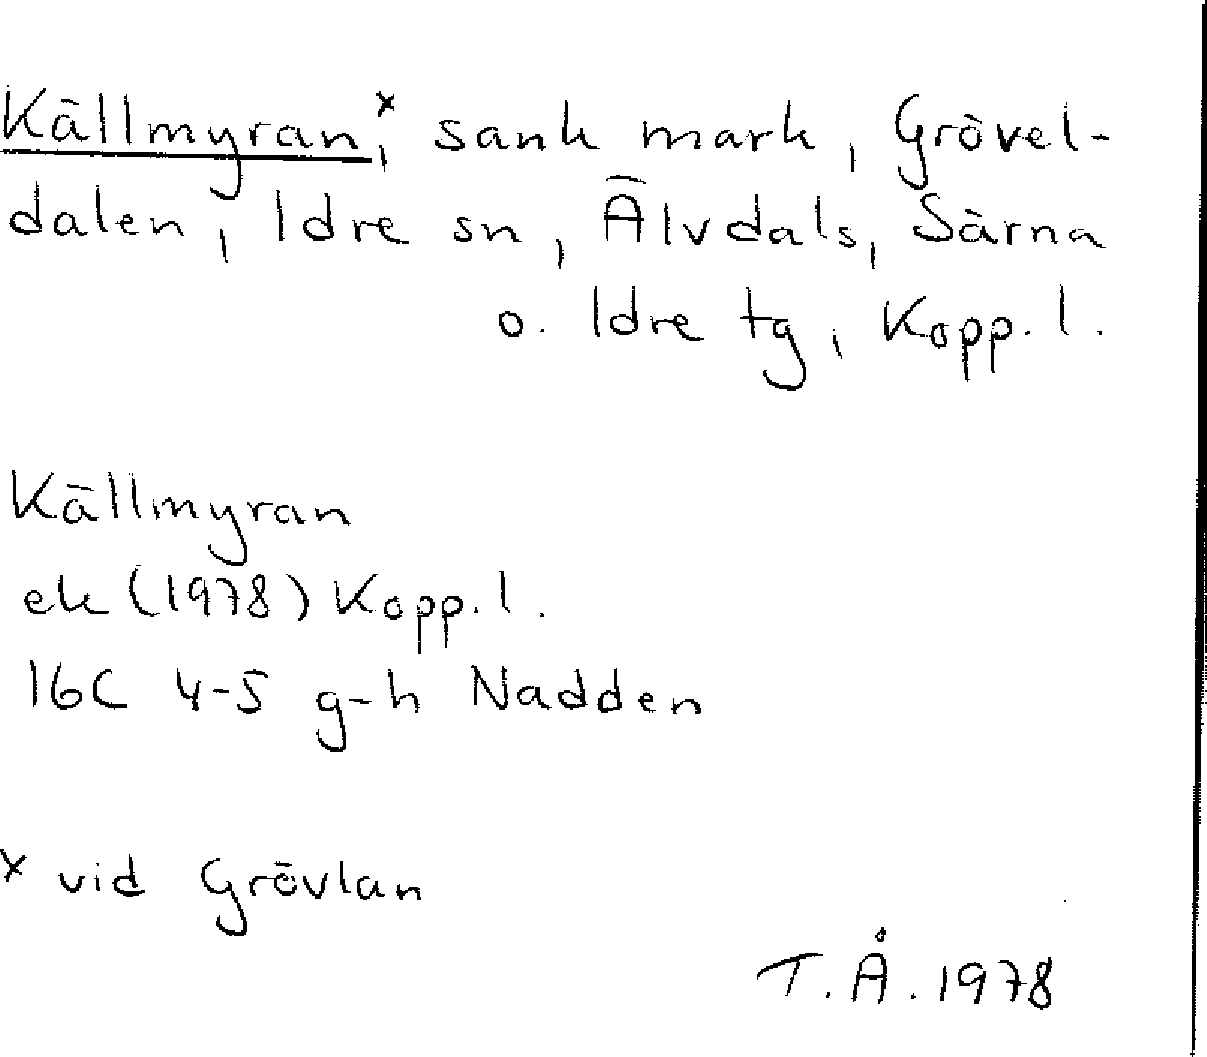 Källmyran,ˣ sank mark, Grövel-
dalen, Idre sn, Älvdals, Särna
o. Idre tg, Kopp. l.
Källmyran
ek (1978) Kopp. l.
16C 4-5 g-h Nadden
x vid Grövlan
T. Å. 1978